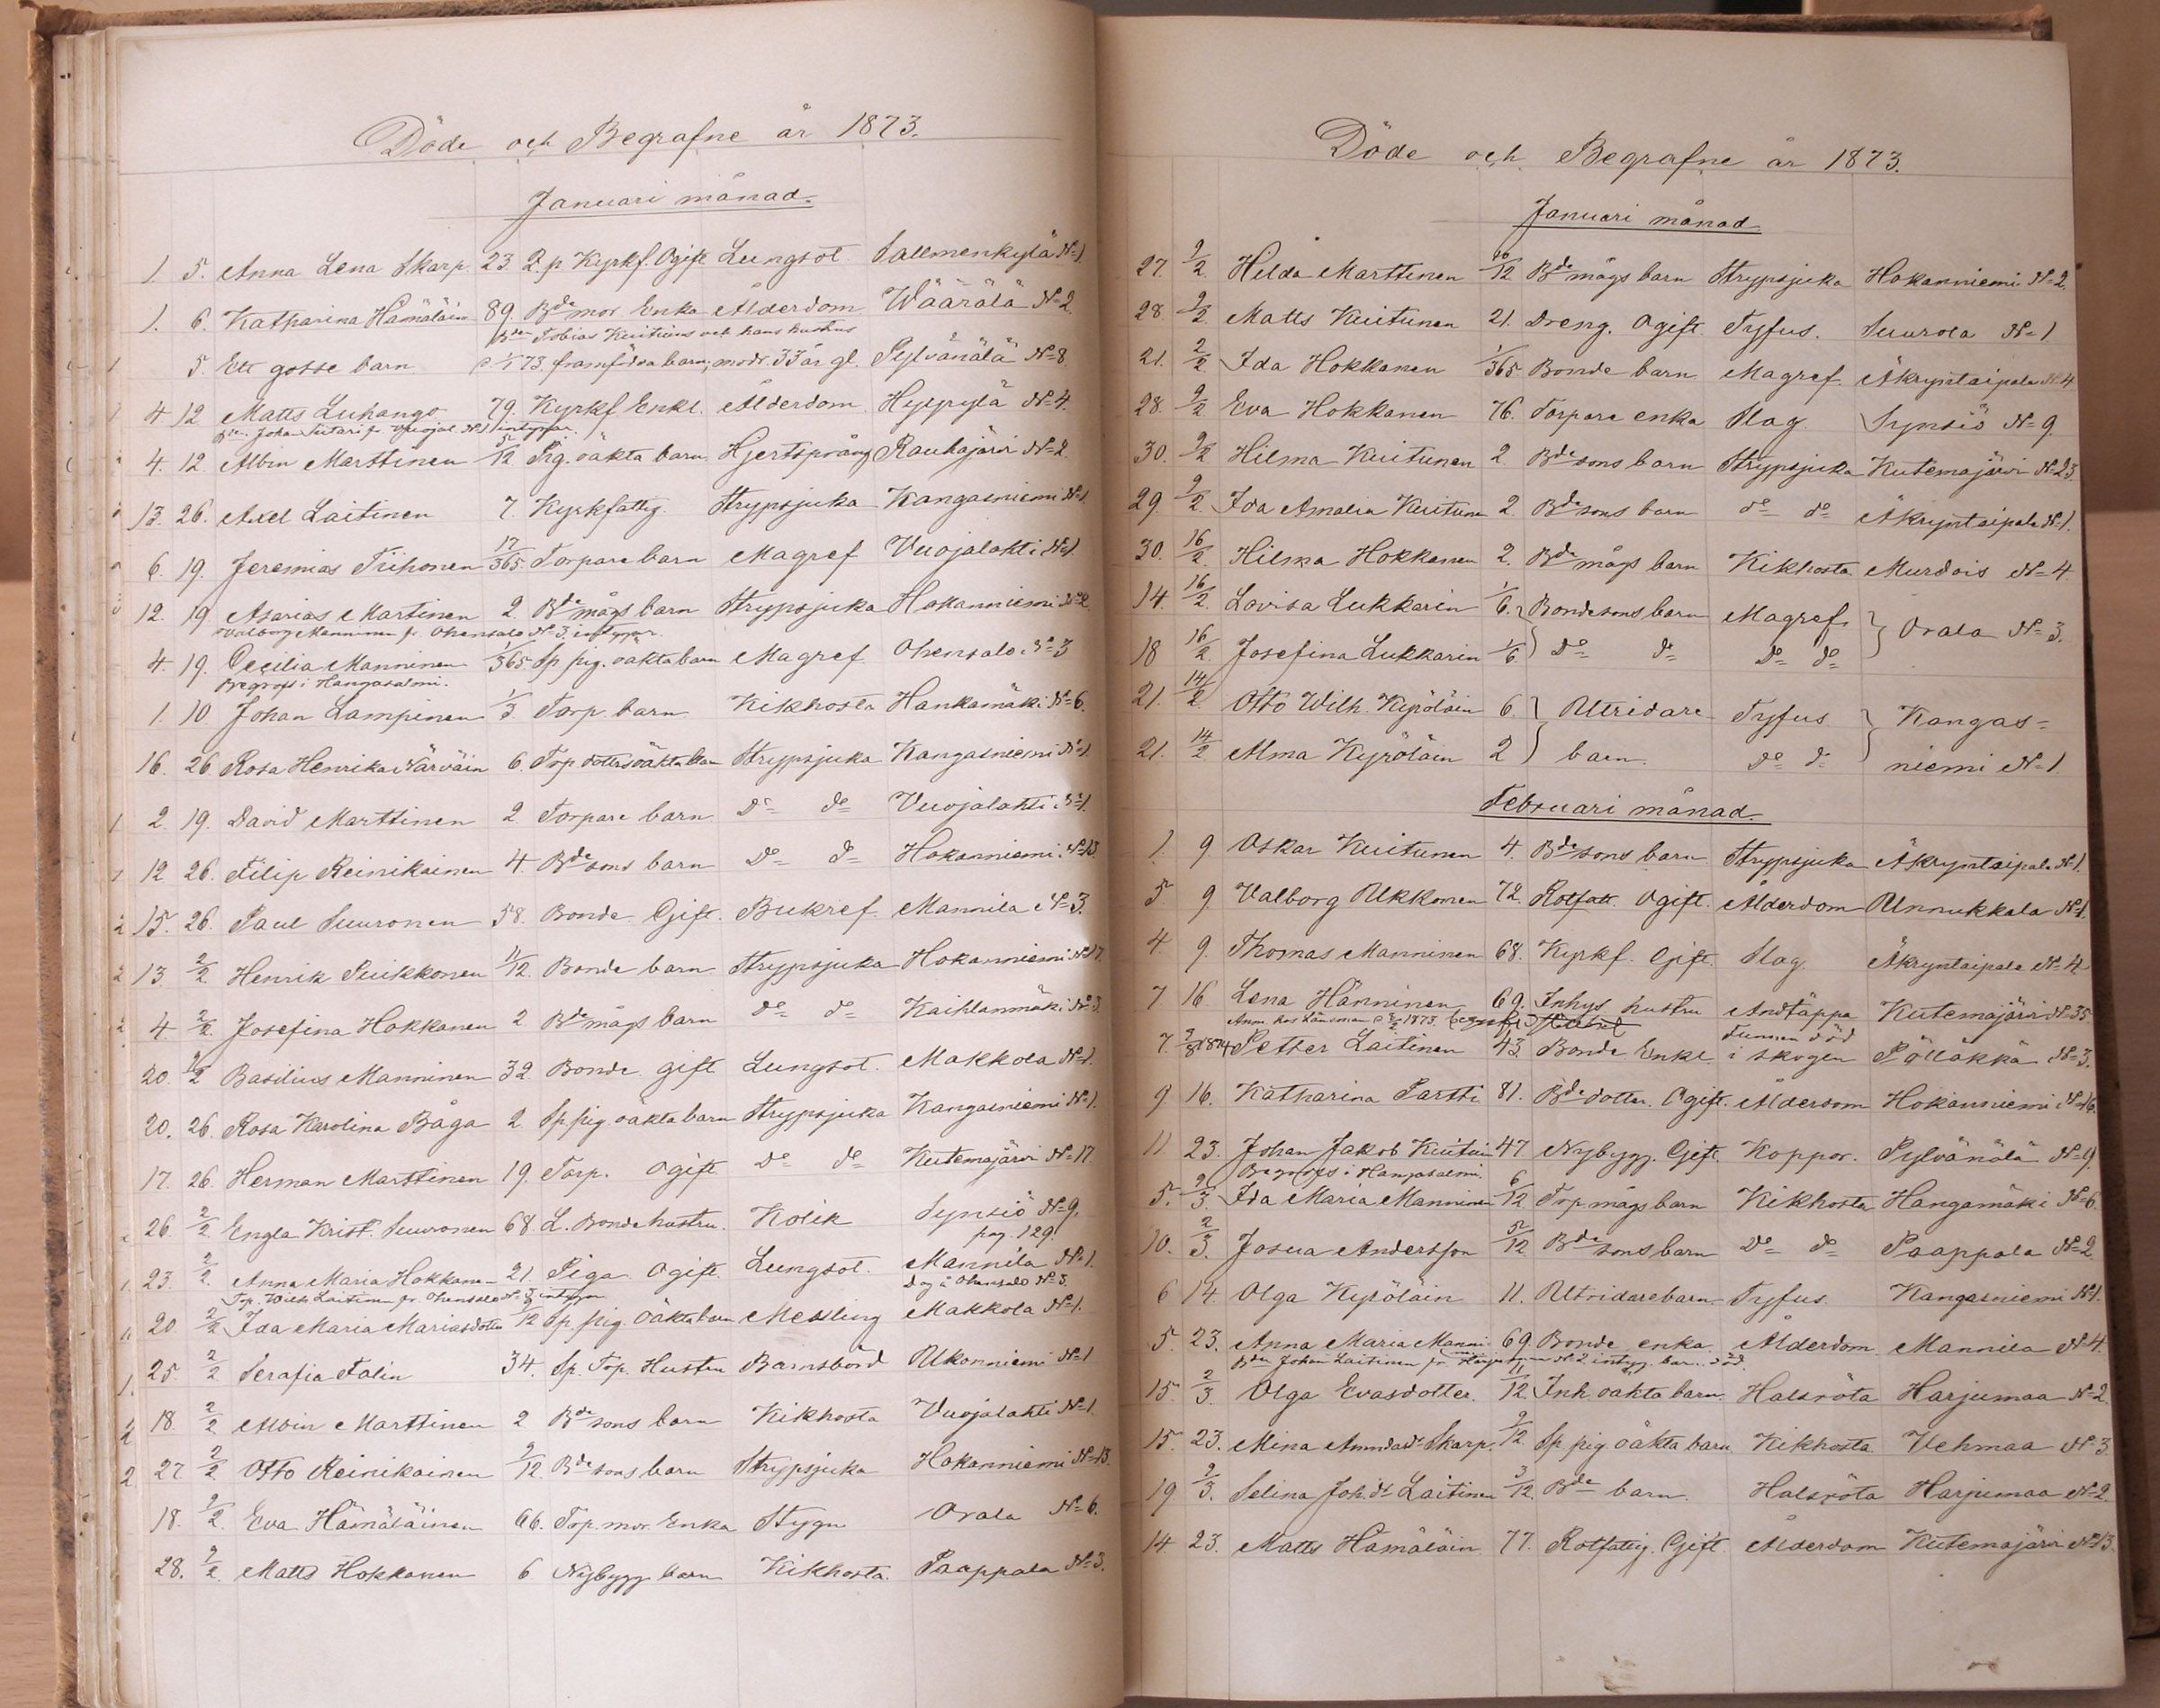 Döde och Begrafne år 1873.
Januari månad.
1. 5. Anna Lena Skarp 23. 2. p Kyrkf. Ogift Lungsot. Salemenkylä No 1.
1. 6. Katharina Hämäläin 89. Bde mor Enka Ålderdom Wäärälä No 2.
Bden Tobias Kuitunens och hans hustrus
5. Ett gosse barn 1/1 73. framfödda barn; modr. 33 år gl. Sylvänälä No 8.
4 12 Matts Luhango 79. Kyrkf Enkl. Ålderdom Hyyrylä No 4.
Johan Tiitari fr. Vuojal. No 1 intygar.
4. 12 Albin Marttinen 5/12 Pig. oäkta barn Hjertsprång Rauhajärvi No 2.
13. 26. Axel Laitinen 7. Kyrkfattig. Strypsjuka Kangasniemi No 1.
6. 19. Jeremias Tiihonen 17/365. Torpare barn Magref Vuojalahti No 1.
12. 19 Asarias Martinen 2 Bde mågs barn Strypsjuka Hokanniemi No 2.
Valborg Manninen fr. Ohensalo No 3. intygar.
4. 19. Cecilia Manninen 1/365 Sp pig. oäkta barn Magref Ohensalo No 3
Begrofs i Hangasalmi.
1. 10 Johan Lampinen 1/3 Torp. barn Kikhosta Hankamäki No 6.
16. 26. Rosa Henrika Närväin 6. Torp dotters oäkta barn Strypsjuka Kangasniemi No 1
2. 19. David Marttinen 2 Torpare barn Do do Vuojalahti No 1.
12 26. Filip Reinikainen 4. Bde sons barn Do do Hokanniemi No 13.
15. 26. Paul Suuronen 58. Bonde Gift. Bukref. Mannila No 3.
13 2/2 Henrik Puikkonen 11/12. Bonde barn Strypsjuka Hokanniemi No 17.
4 2/2. Josefina Hokkanen 2 Bde mågs barn do do Kaihlanmäki No 3
20. 2/2 Basilius Manninen 32 Bonde gift Lungsot. Makkola No 1.
20. 26. Rosa Karolina Båga 2. Sp. pig. oäkta barn Strypsjuka Kangasniemi No 1.
17. 26. Herman Marttinen 19. Torp. Ogift Do do Kutemajärvi No 17
26. 2/2 Engla Krist. Suuronen 68 L. Bonde hustru. Kolik Synsiö No 9.
pag. 129.
23. 2/2. Anna Maria Hokkane- 21. Piga Ogift. Lungsot. Mannila No 1.
Dog å Ohensalo No 3.
Torp. Wilh. Laitinen fr. Ohensalo No 3 intygar
20 2/2 Ida Maria Mariasdotter /12 Sp pig. oäkta barn Messling Makkola No 1.
25. 2/2 Serafia Falin 34. Sp. Torp. Hustru Barnsbörd Ukonniemi No 1
18. 2/2 Albin Marttinen 2 Bde sons barn Kikhosta Vuojalahti No 1.
27 2/2 Otto Reinikainen 9/12. Bde sons barn Strypsjuka Hokanniemi No 13.
18. 9/2. Eva Hämäläinen 66. Torp. mor Enka Stygn Orala No 6.
28. 9/2. Matts Hokkanen 6 Nybygg barn Kikhosta. Paappala No 3.
Döde och Begrafne år 1873.
Januari månad
27. 9/2. Helda Marttinen 10/12 Bde mågs barn Strypsjuka Hokanniemi No 2.
28. 9/2. Matts Kuitunen 21. Dreng. Ogift. Tyfus. Suurola No 1
21. 2/2. Ida Hokkanen 1/365. Bonde barn Magref. Äkryntaipale No 4
28. 9/2 Eva Hokkanen 76. Torpare enka Slag Synsiö No 9.
30. 9/2 Hilma Kuitunen 2. Bde sons barn Strypsjuka Kutemajärvi No 23
29 9/2. Ida Amalia Kuitunen 2. Bde sons barn do do Äkryntaipale No 1.
30. 16/2. Hilma Hokkanen 2. Bde mågs barn Kikhosta Murdois No 4
14. 16/2. Lovisa Lukkarin 1/6. Bondesons barn Magref. Orala No 3.
18 16/2. Josefina Lukkarin 1/6 Do do Do do
21. 14/2 Otto Wilh. Kyröläin 6. Utridare Tyfus Kangas=
21. 14/2 Alma Kyröläin 2 barn. Do do niemi No 1.
Februari månad.
1. 9. Oskar Kuitunen 4. Bde sons barn Strypsjuka Äkryntaipale No 1.
5. 9 Valborg Ukkonen 72. Rotfatt. Ogift. Ålderdom Unnukkala No 1.
4 9. Thomas Manninen 68. Kyrkf. Gift. Slag. Äkryntaipale No 4
7 16 Lena Hänninen 69. Inhys hustru Andtäppa Kutemajärvi No 35
7. 2/8 1874 Petter Laitinen 43. Bonde Enkl. Funnen död i skogen Pölläkkä No 3.
9. 16. Katharina Partti 81. Bde dotter. Ogift. Ålderdom Hokanniemi No 16.
11 23. Johan Jakob Kuitun 47 Nybygg. Gift. Koppor. Sylvänälä No 9.
Begrofs i Hangasalmi.
5. 2/3. Ida Maria Manninen 6/12 Torp. mågs barn Kikhosta Hangamäki No 6.
10. 2/3. Josua Andersson 5/12 Bde sons barn Do do Paappala No 2
6 14. Olga Kyröläin 11. Utridarebarn. Tyfus. Kangasniemi No 1.
5. 23. Anna Maria Manni- 69. Bonde enka Ålderdom Mannila No 4.
Bden Johan Laitinen fr. Harjumaa No 2 intyg. barn. död.
15. 2/3 Olga Evasdotter. 11/12 Inh. oäkta barn. Halsröta Harjumaa No 2.
15. 23. Mina Annasdr Skarp. 9/12 Sp pig oäkta barn Kikhosta Vehmaa No 3
19 2/3. Selina Joh. dr Laitinen 3/12. Bde barn. Halsröta Harjumaa No 2.
14 23. Matts Hämäläin 77. Rotfattig. Gift. Ålderdom Kutemajärvi No 13.